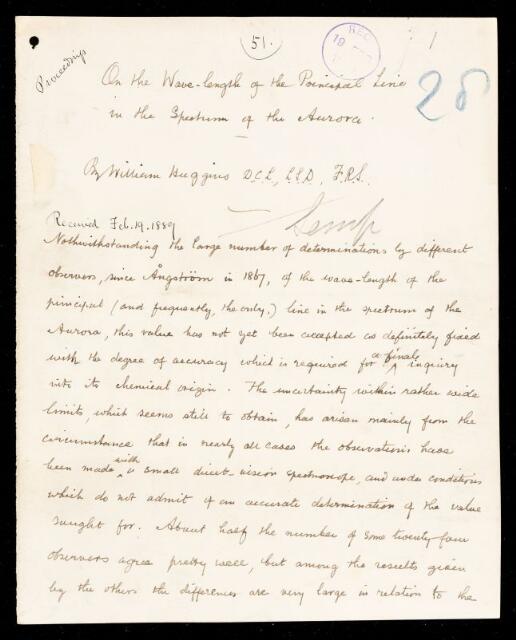 51.
REC
19
1
Proceedings
28
On the Wave-length of the Principal Line
in the Spectrum of the Aurora.
By William Huggins D.C.L., LL.D., F.R.S.
Received Feb. 19. 1889
Nothwithstanding the large number of determinations by different
observers, since Ångström in 1867, of the wave-length of the
principal (and frequently, the only,) line in the spectrum of the
Aurora, this value has not yet been accepted as definitely fixed
with the degree of accuracy which is required for a final inquiry
into its chemical origin. The uncertainty within rather wide
limits, which seems still to obtain, has arisen mainly from the
circumstance that in nearly all cases the observations have
been made with a small direct-vision spectroscope, and under conditions
which do not admit of an accurate determination of the value
sought for. About half the number of some twenty-four
observers agree pretty well, but among the results given
by the others the differences are very large in relation to the